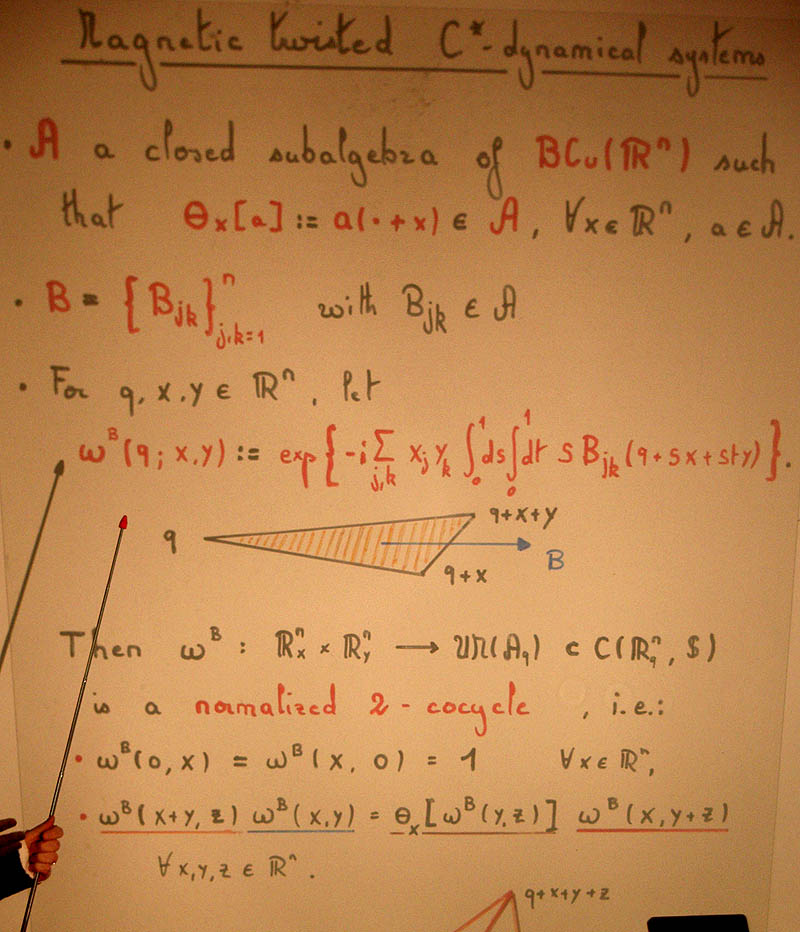 Magnetic twisted C*-dynamical systems
• A a closed subalgebra of BCu(ℝⁿ) such
that θₓ[a] := a(· + x) ∈ A, ∀x ∈ ℝⁿ, a ∈ A.
• B = {B_jk}ⁿ_j,k=1 with B_jk ∈ A
• For q, x, y ∈ ℝⁿ, let
ω^B(q; x, y) := exp{-i ∑_j,k x_j y_k ∫₀¹ ds ∫₀¹ dt s B_jk (q + sx + sty)}.
q+x+y
q
B
q+x
Then ω^B : ℝⁿₓ × ℝⁿ_y → U𝔐(A_q) ⊂ C(ℝⁿ_q, 𝕊)
is a normalized 2-cocycle, i.e.:
• ω^B(0, x) = ω^B(x, 0) = 1 ∀x ∈ ℝⁿ,
• ω^B(x+y, z) ω^B(x, y) = θₓ[ω^B(y, z)] ω^B(x, y+z)
∀x, y, z ∈ ℝⁿ.
q+x+y+z